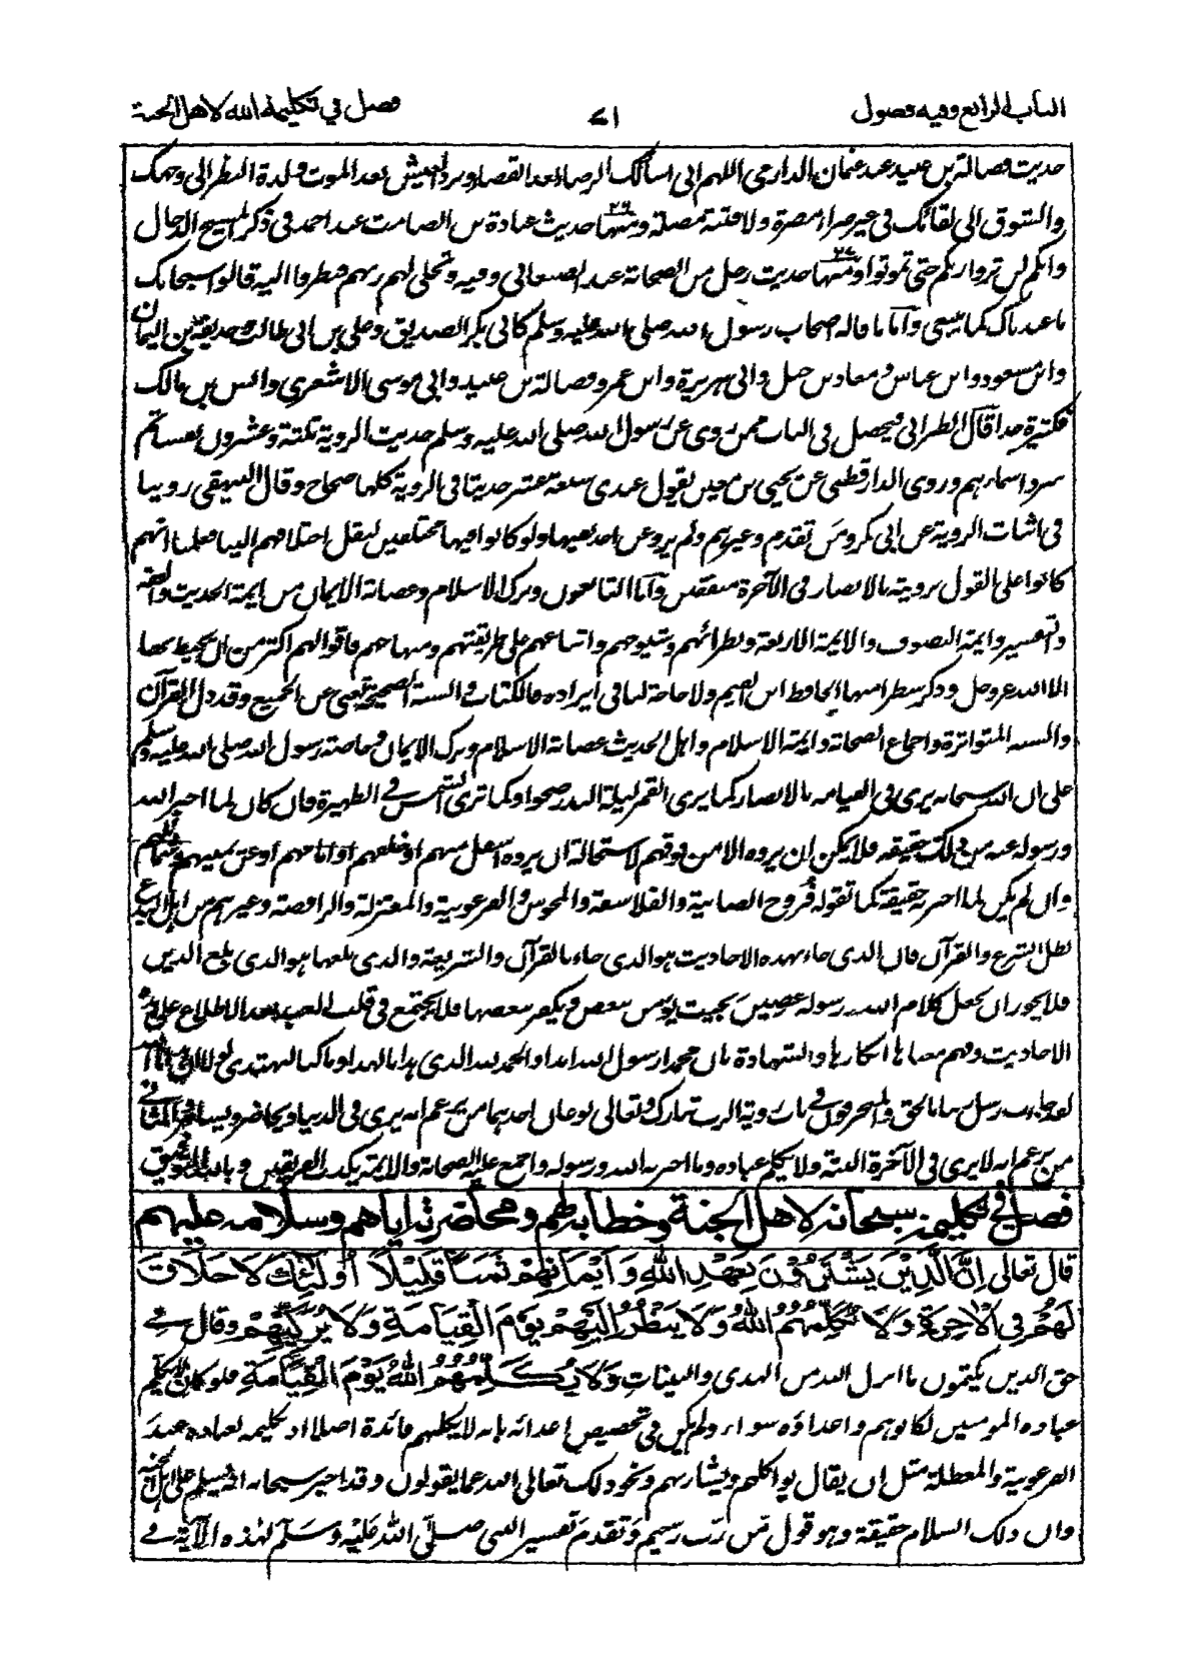 الباب الرابع وفيه فصول
٧١
فصل في تكليمه الله لاهل الجنة
حديث فضالة بن عبيد عند عثمان الدارمي اللهم اني اسألك الرضا بعد القضا وبرد العيش بعد الموت ولذة النظر الى وجهك
والشوق الى لقائك في غير ضراء مضرة ولا فتنة مضلة ومنها حديث عبادة بن الصامت عند احمد في ذكر المسيح الدجال
وانكم لن تروا ربكم حتى تموتوا ومنها حديث رجل من الصحابة عند الصغاني وفيه وتجلى لهم ربهم فنظروا اليه قالوا سبحانك
ما عبدناك كما ينبغي وآما ما قاله اصحاب رسول الله صلى الله عليه وسلم كابي بكر الصديق وعلي بن ابي طالب وحذيفة بن اليمان
وابن مسعود وابن عباس ومعاذ بن جبل وابي هريرة وابن عمر وفضالة بن عبيد وابي موسى الاشعري وانس بن مالك
فكثيرة جدا قال الطبراني فيحصل في الباب ممن روى عن رسول الله صلى الله عليه وسلم حديث الروية ثلثة وعشرون نفسا ثم
سرد اسماءهم وروى الدارقطني عن يحيى بن معين يقول عندي سبعة عشر حديثا في الروية كلها صحاح وقال البيهقي روينا
في اثبات الروية عن ابي بكر ومن تقدم وغيرهم ولم يرو عن احد نفيها ولو كانوا فيها مختلفين لنقل اختلافهم الينا فعلمنا انهم
كانوا على القول بروية بالابصار في الآخرة متفقين وآما التابعون وبرك الاسلام وعصابة الايمان من ايمة الحديث والفقه
والتفسير وايمة التصوف والايمة الاربعة ونظرائهم وشيوخهم واتباعهم على طريقتهم ومنهاجهم فاقوالهم اكثر من ان يحيط بها
الا الله عز وجل وذكر سطرا منها الحافظ ابن القيم ولا حاجة لنا في ايراده فالكتاب والسنة الصحيحة تغني عن الجميع وقد دل القرآن
والسنة المتواترة واجماع الصحابة وايمة الاسلام واهل الحديث عصابة الاسلام وبرك الايمان وخاصة رسول الله صلى الله عليه وسلم
على ان الله سبحانه يرى في القيامة بالابصار كما يرى القمر ليلة البدر صحوا وكما ترى الشمس في الظهيرة فان كان لما اخبر الله
ورسوله عنه من ذلك حقيقة فلا يمكن ان يروه الا من فوقهم لاستحالة ان يروه اسفل منهم او خلفهم او امامهم او عن يمينهم وشمالهم
وان لم يكن لما اخبر به حقيقة كما تقوله فروخ الصابية والفلاسفة والمجوس والفرعونية والمعتزلة والرافضة وغيرهم من اهل البدع
بطل الشرع والقرآن فان الذي جاء بهذه الاحاديث هو الذي جاء بالقرآن والشريعة والذي بلغها هو الذي بلغ الدين
فلا يجوز ان يجعل كلام الله ورسوله عضين بحيث يؤمن ببعض ويكفر ببعضها فلا يجتمع في قلب العبد بعد الاطلاع على هذه
الاحاديث وفهم معناها انكارها والشهادة بان محمدا رسول الله ابدا والحمد لله الذي هدانا لهذا وما كنا لنهتدي لولا ان هدانا الله
لقد جاءت رسل ربنا بالحق والمنحرفون في باب روية الرب تبارك وتعالى نوعان احدهما من يزعم انه يرى في الدنيا ويحاضر ويسامر والثاني
من يزعم انه لا يرى في الآخرة البتة ولا يكلم عباده وما اخبر به الله ورسوله واجمع عليه الصحابة والايمة يكذب الفريقين وبالله التوفيق
فصل في تكليمه سبحانه لاهل الجنة وخطابه لهم ومحاضرته اياهم وسلامه عليهم
قال تعالى اِنَّ الَّذِيْنَ يَشْتَرُوْنَ بِعَهْدِ اللّٰهِ وَاَيْمَانِهِمْ ثَمَنًا قَلِيْلًا اُولٰئِكَ لَا خَلَاقَ
لَهُمْ فِي الْاٰخِرَةِ وَلَا يُكَلِّمُهُمُ اللّٰهُ وَلَا يَنْظُرُ اِلَيْهِمْ يَوْمَ الْقِيَامَةِ وَلَا يُزَكِّيْهِمْ وقال في
حق الذين يكتمون ما انزل الله من الهدى والبينات وَلَا يُكَلِّمُهُمُ اللّٰهُ يَوْمَ الْقِيَامَةِ فلو كان لا يكلم
عباده المومنين لكانوا هم واعداؤه سواء ولم يكن في تخصيص اعدائه بانه لا يكلمهم فائدة اصلا اذ تكليمه لعباده عند
الفرعونية والمعطلة مثل ان يقال يواكلهم ويشاربهم ونحو ذلك تعالى الله عما يقولون وقد اخبر سبحانه انه يسلم على اهل الجنة
وان ذلك السلام حقيقة وهو قول من رب رحيم وتقدم تفسير النبي صلى الله عليه وسلم لهذه الآية في